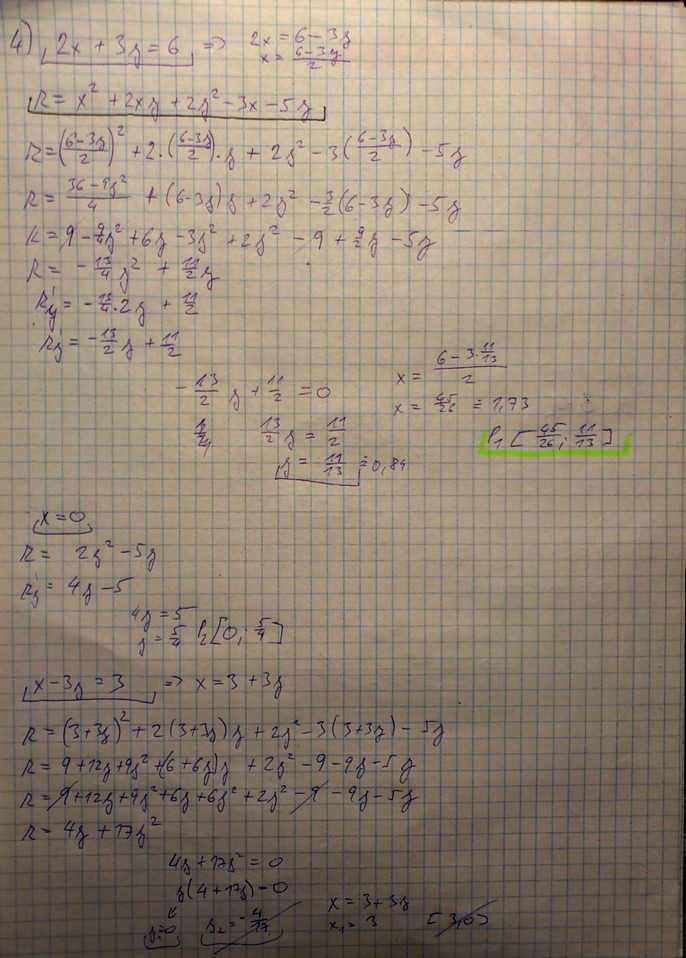 4) 2x + 3y = 6 => 2x = 6 - 3y
x = (6-3y)/2
z = x² + 2xy + 2y² - 3x - 5y
z = ((6-3y)/2)² + 2·((6-3y)/2)·y + 2y² - 3((6-3y)/2) - 5y
z = (36-9y²)/4 + (6-3y)y + 2y² - 3/2(6-3y) - 5y
z = 9 - 9/4y² + 6y - 3y² + 2y² - 9 + 9/2y - 5y
z = -13/4y² + 11/2y
z'y = -13/4·2y + 11/2
z'y = -13/2y + 11/2
-13/2 y + 11/2 = 0
13/2 y = 11/2
y = 11/13 ≐ 0,84
x = (6-3·11/13)/2
x = 45/26 ≐ 1,73
P₁[45/26; 11/13]
x = 0
z = 2y² - 5y
z'y = 4y - 5
4y = 5
y = 5/4 P₂[0; 5/4]
x - 3y = 3 => x = 3 + 3y
z = (3+3y)² + 2(3+3y)y + 2y² - 3(3+3y) - 5y
z = 9 + 12y + 9y² + (6+6y)y + 2y² - 9 - 9y - 5y
z = 9 + 12y + 9y² + 6y + 6y² + 2y² - 9 - 9y - 5y
z = 4y + 17y²
4y + 17y² = 0
y(4 + 17y) = 0
y₁=0 y₂ = -4/17
x = 3 + 3y
x₁ = 3 [3,0]